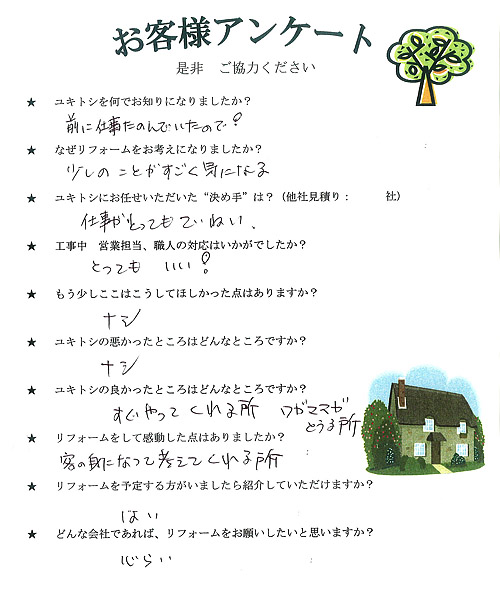 お客様アンケート
是非　ご協力ください
★　ユキトシを何でお知りになりましたか？
前に仕事たのんでいたので！
★　なぜリフォームをお考えになりましたか？
少しの ことがすごく気になる
★　ユキトシにお任せいただいた“決め手”は？（他社見積り：　　　社）
仕事がとってもていねい、
★　工事中　営業担当、職人の対応はいかがでしたか？
とっても いい！
★　もう少しここはこうしてほしかった点はありますか？
ナシ
★　ユキトシの悪かったところはどんなところですか？
ナシ
★　ユキトシの良かったところはどんなところですか？
すぐやって くれる所 ワガママガ
とうる所
★　リフォームをして感動した点はありましたか？
客の身になって考えてくれる所
★　リフォームを予定する方がいましたら紹介していただけますか？
はい
★　どんな会社であれば、リフォームをお願いしたいと思いますか？